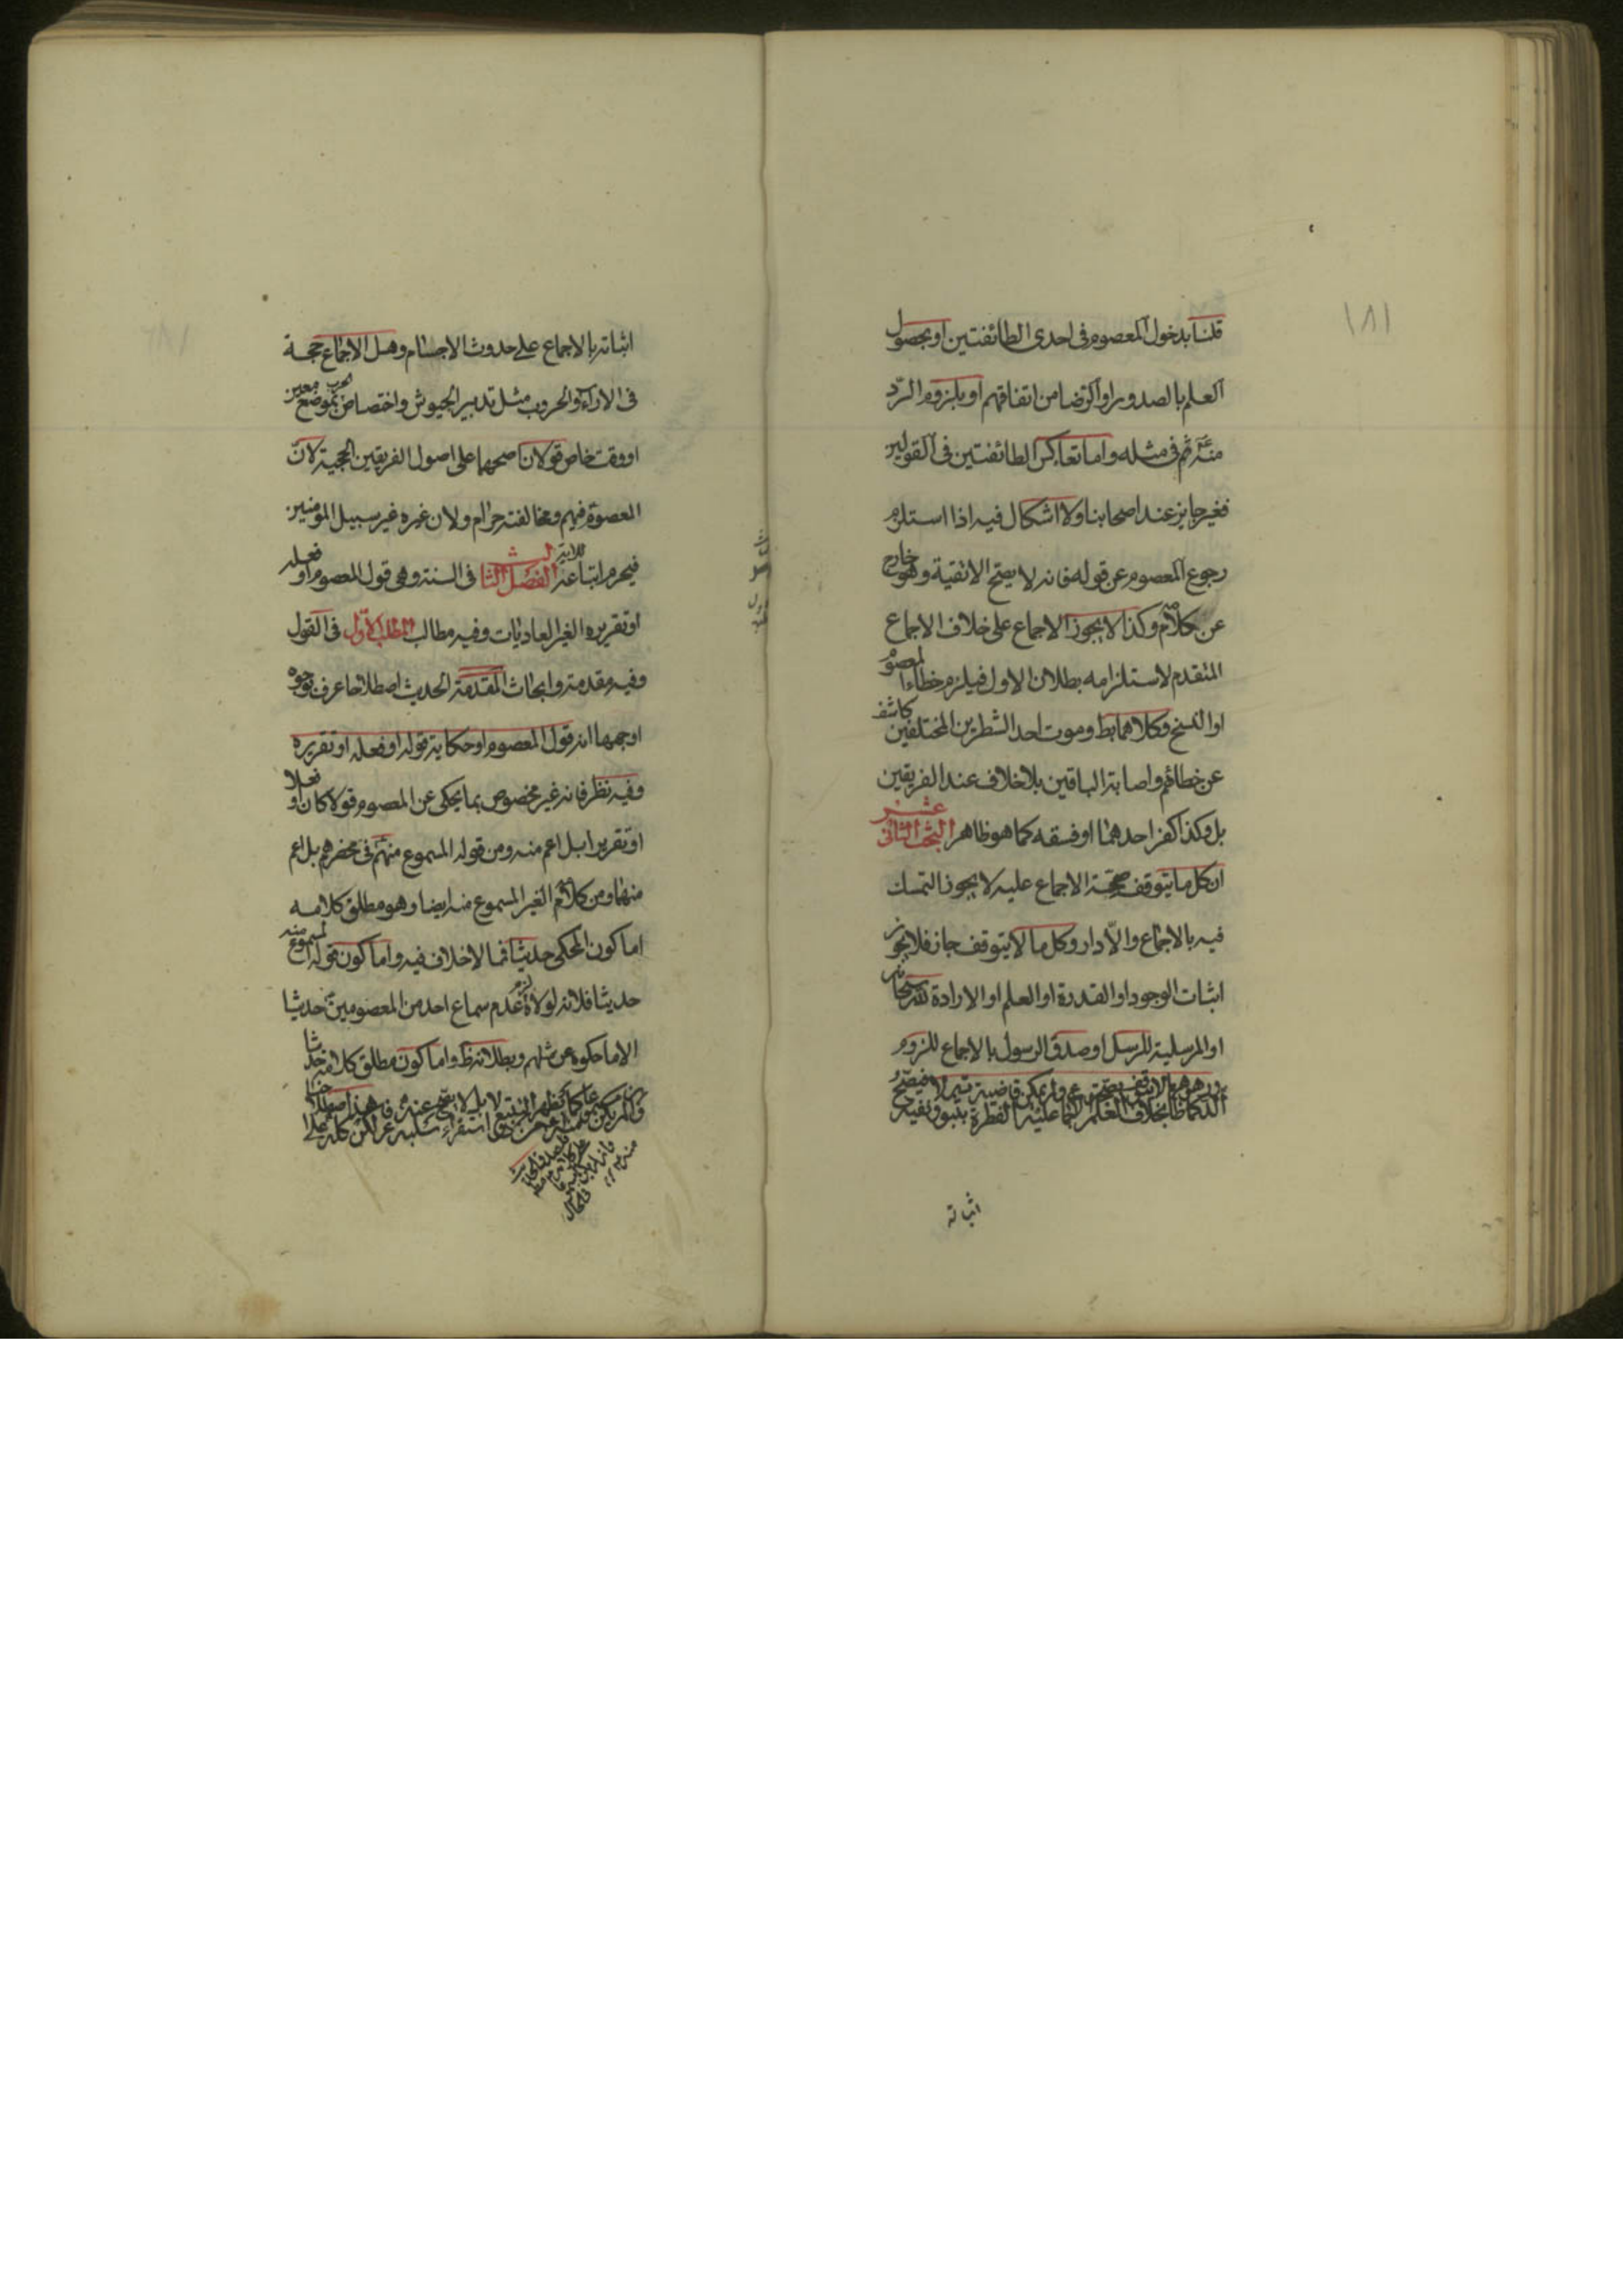 ١٨١
قلنا بدخول المعصوم فى احدى الطائفتين او بحصول
العلم بالصدور او الرضا من اتفاقهم او بلزوم الرّد
منه ثم فى مثله واما تعاكس الطائفتين فى القولين
فغير جايز عند اصحابنا ولا اشكال فيه اذا استلزم
رجوع المعصوم عن قوله فانه لا يصح الا تقية وهو خارج
عن كلامهم وكذا لا يجوز الاجماع على خلاف الاجماع
المتقدم لاستلزامه بطلان الاول فيلزم خطاء المعصوم
او النسخ وكلاهما بط وموت احد الشطرين المختلفين كاشف
عن خطائهم واصابة الباقين بلا خلاف عند الفريقين
بل وكذا كفر احدهما او فسقه كما هو ظاهر البحث الثانى عشر
ان كل ما يتوقف صحة الاجماع عليه لا يجوز التمسك
فيه بالاجماع والّا دار وكل ما لا يتوقف جاز فلا يجوز
اثبات الوجود او القدرة او العلم او الارادة لله سبحانه
او المرسلية للرسل او صدق الرسول بالاجماع للزوم
اثباته
اثباته بالاجماع على حدوث الاجسام وهل الاجماع حجة
فى الاراء والحروب مثل تدبير الجيوش واختصاص الحرب بموضع معين
او وقت خاص قولان اصحهما على اصول الفريقين الحجية لانّ
المعصوم فيهم ومخالفته حرام ولان غيره غير سبيل المؤمنين
فيحرم اتباعه للاية الفصل الثالث فى السنة وهى قول المعصوم او فعله
او تقريره الغير العاديات وفيه مطالب المطلب الاول فى القول
وفيه مقدمة وابحاث المقدمة الحديث اصطلاحا عرف بوجوه
اوجهها انه قول المعصوم او حكاية قوله او فعله او تقريره
وفيه نظر فانه غير مخصوص بما يحكى عن المعصوم قولا كان او فعلا
او تقريرا بل اعم منه ومن قوله المسموع منهم فى محضرهم بل اعم
منهما ومن كلامهم الغير المسموع منه ايضا وهو مطلق كلامه
اما كون المحكى حديثا فمما لا خلاف فيه واما كون قوله المسموع منه
حديثا فلانه لولاه لزم عدم سماع احد من المعصومين حديثا
الا ما حكوه عن مثلهم وبطلانه ظ واما كون مطلق كلامه حديثا